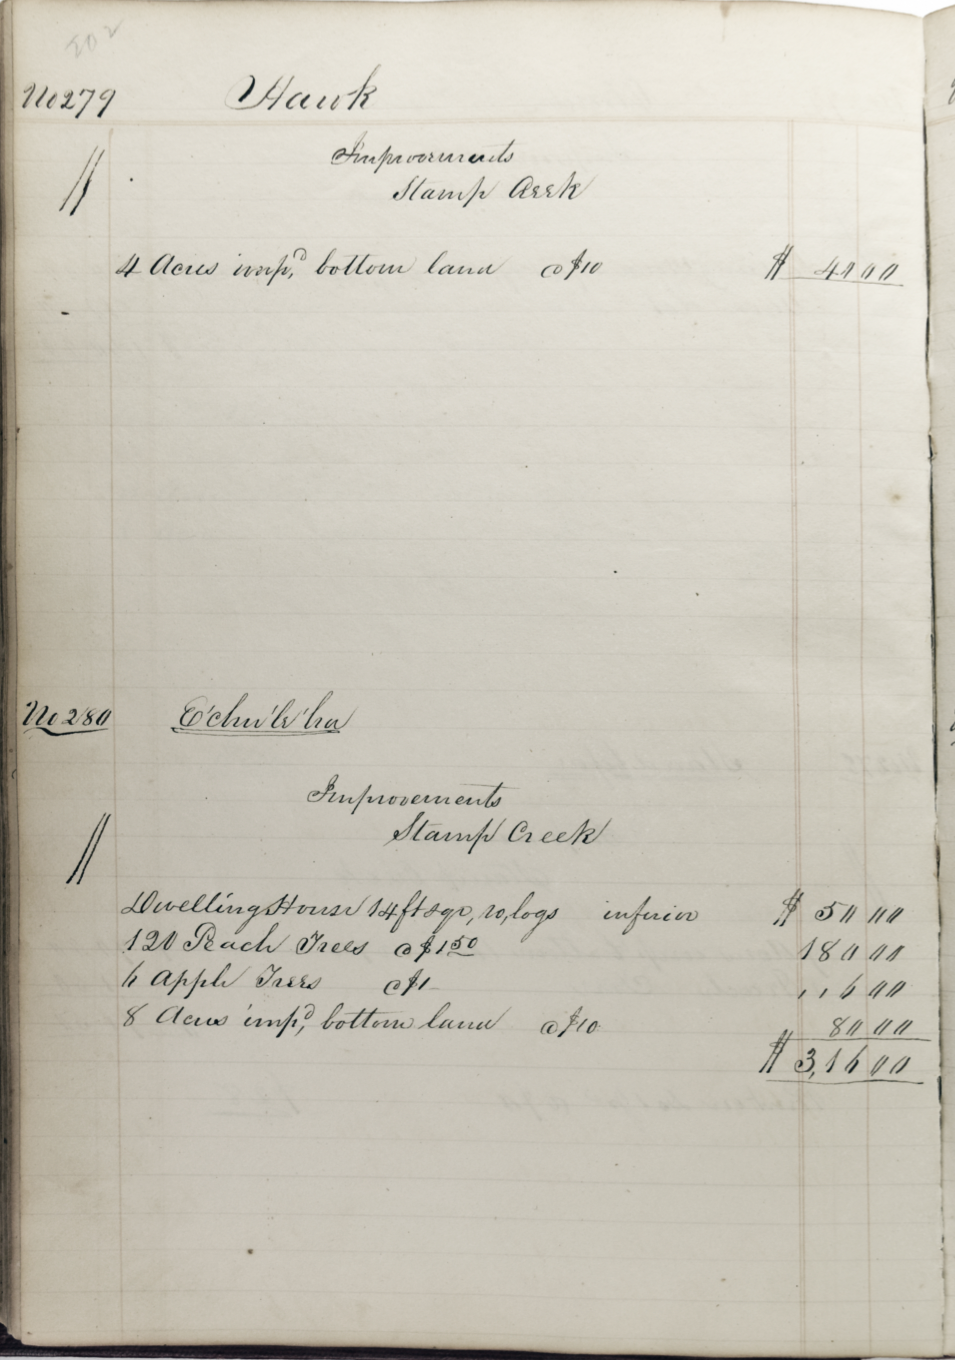 202
No 279 Hawk
Improvements
Stamp Creek
4 Acres imp,d bottom land @ $10 $ 40 00
No 280 E'chu'le'ha
Improvements
Stamp Creek
Dwelling House 14 ft sqr, ro, logs inferior $ 50 00
120 Peach Trees @ $1 50 180 00
6 Apple Trees @ $1 " " 6 00
8 Acres imp,d bottom land @ $10 80 00
$ 3,16 00